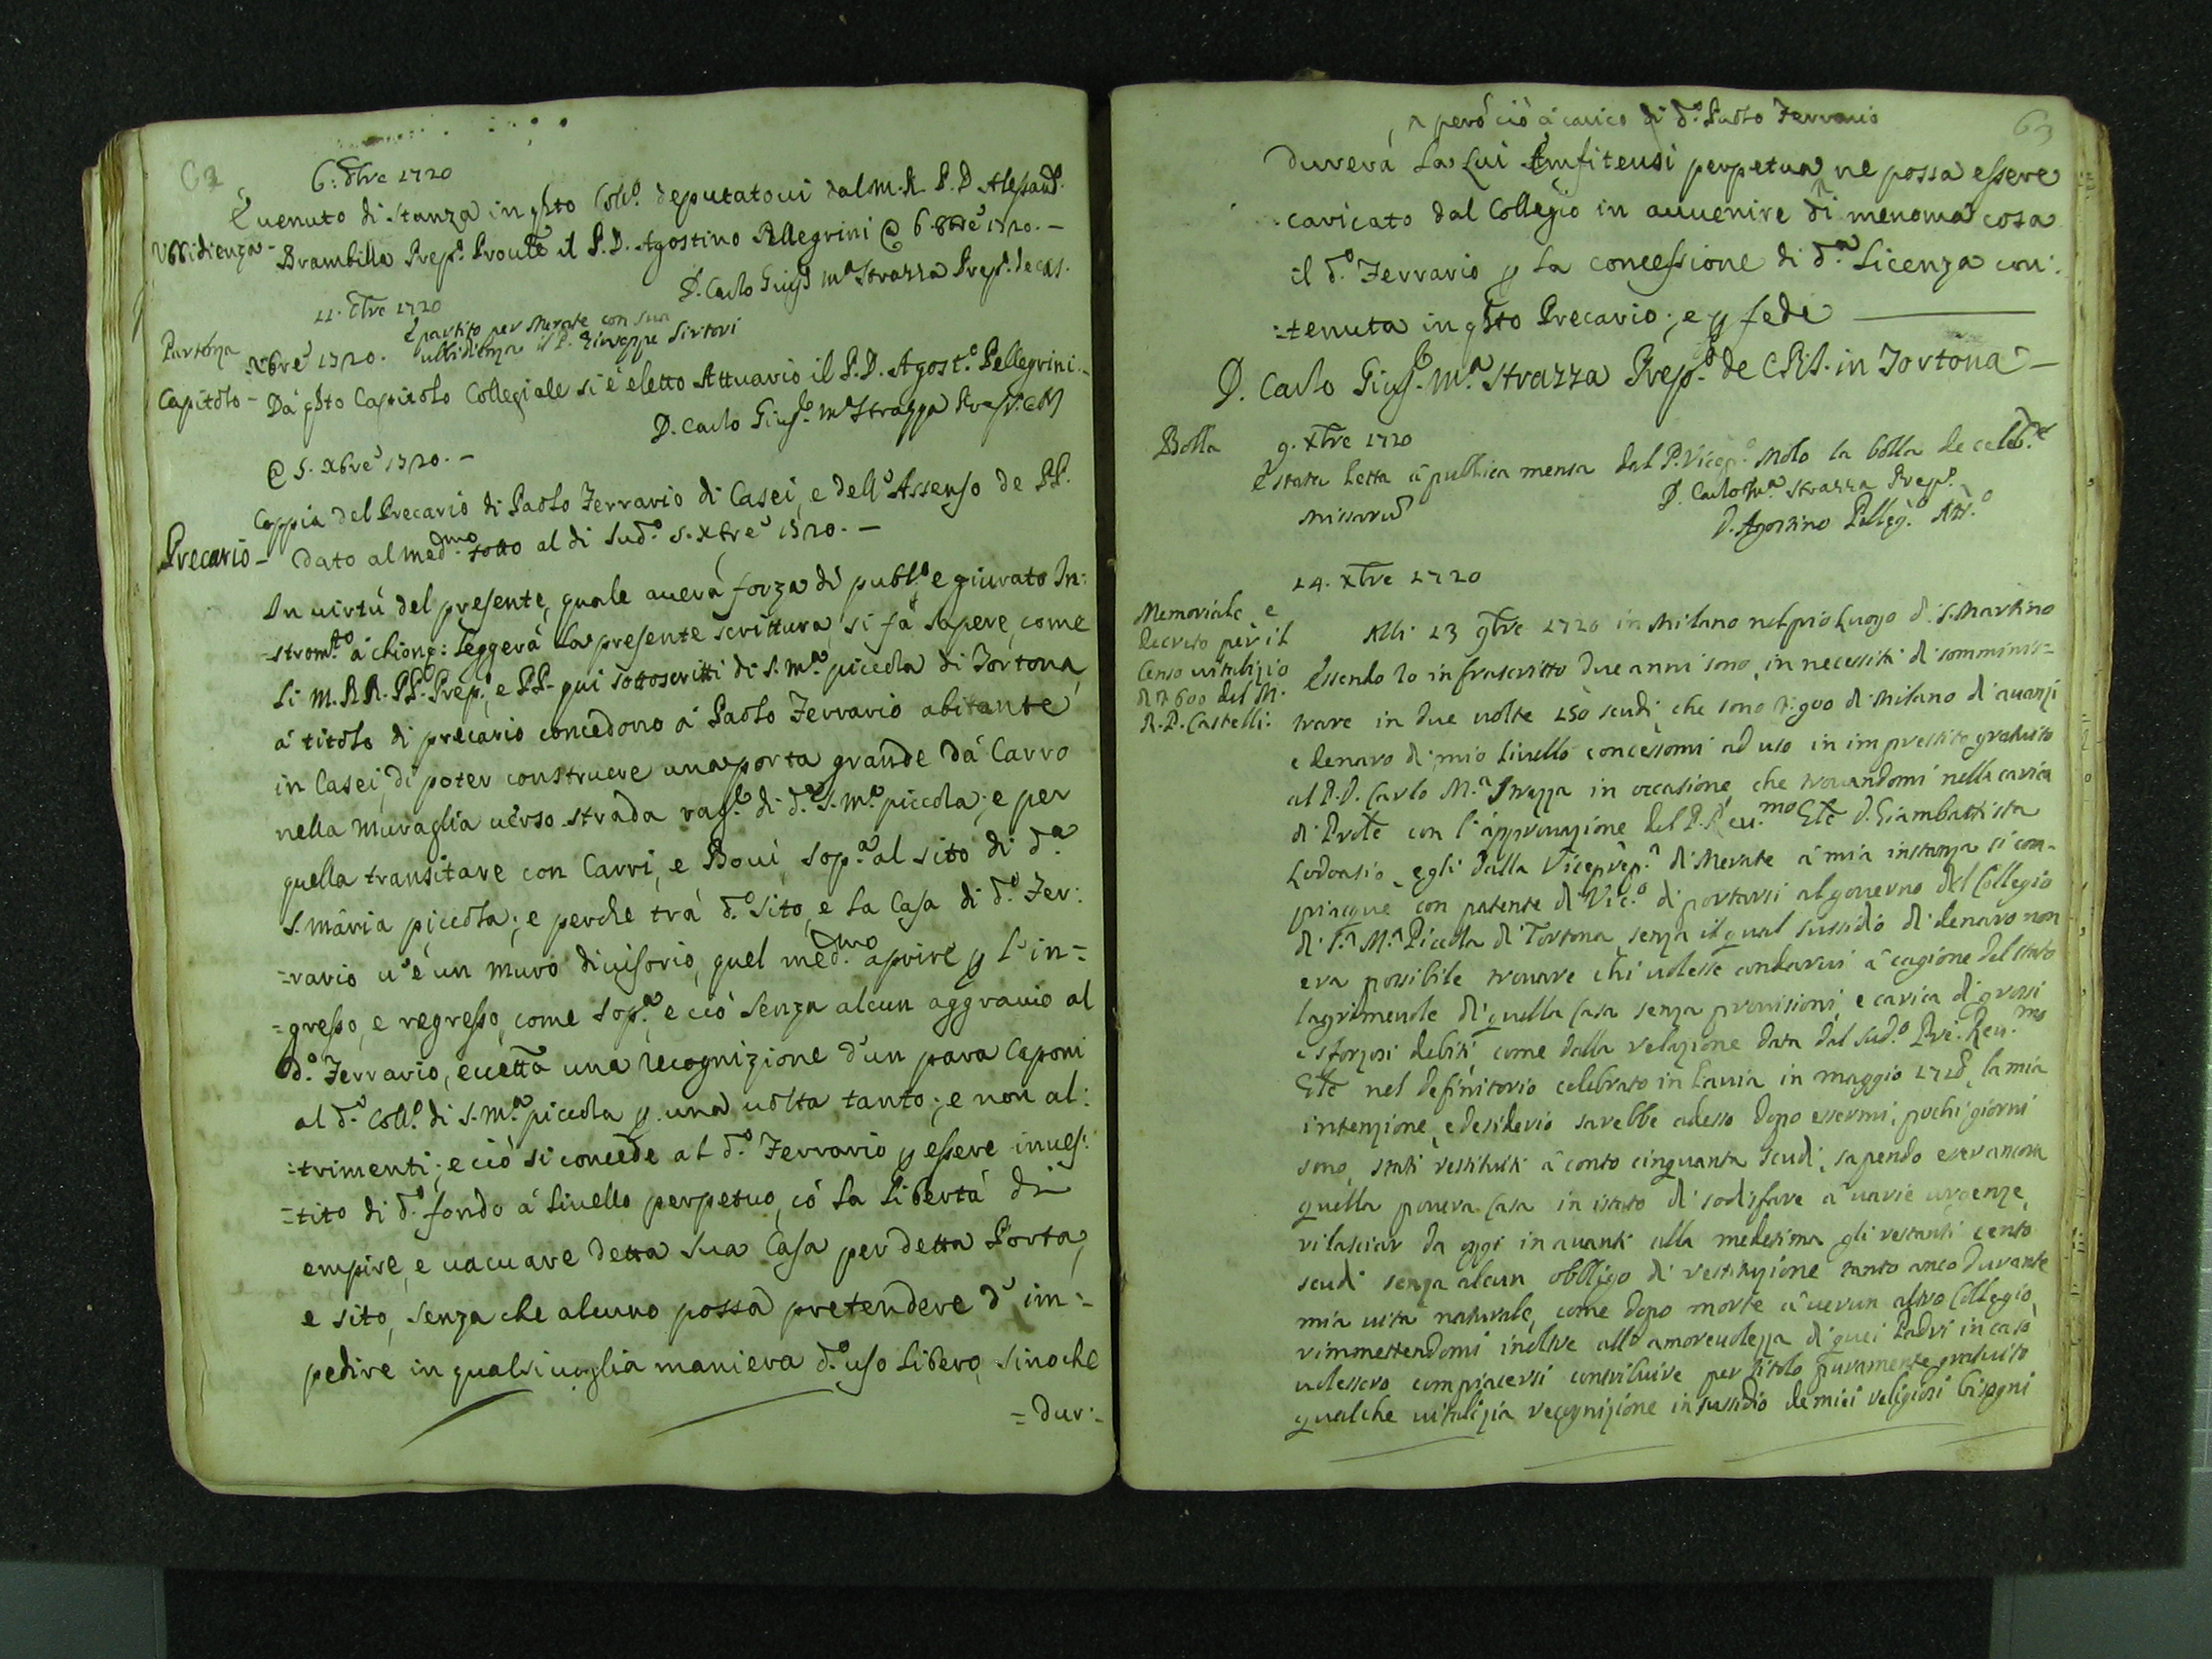 62
6: 8bre 1720
È uenuto di stanza in qsto Coll.o deputatoui dal m.R. P.D. Alessand.o
Vbbidienza - Brambilla Prep.o Prouле il P.D. Agostino Pellegrini @ 6. 8bre 1720. -
D. Carlo Gius.e M.a Strazza Prep.to de CRS.
11. 8bre 1720
Partenza
È partito per Merate con sua
ubbidienza il P. Giuseppe Sirtori
Xbre 1720.
Capitolo - Da qsto Capitolo Collegiale si è eletto Attuario il P.D. Agost.o Pellegrini. -
D. Carlo Gius.e M.a Strazza Prep.to CRS
@ 5. Xbre 1720. -
Coppia del Precario di Paolo Ferrario di Casei, e dell'Assenso de PP.
Precario - dato al med.mo sotto al di sud.o 5. Xbre 1720. -
In uirtù del presente, quale auerà forza di publ.o e giurato In:
=strom.to à chionq: leggerà la presente scrittura, si fà sapere, come
li M.RR. PP. Prep.o, e PP. qui sottoscritti di S. M.a piccola di Tortona
à titolo di precario concedono à Paolo Ferrario abitante
in Casei, di poter construere una porta grande dà Carro
nella muraglia uerso strada rag.e di d.a S. M.a piccola; e per
quella transitare con Carri, e Boui, sop.a al sito di d.a
S. Maria piccola; e perche trà d.o sito, e la Casa di d.o Fer:
=rario u'è un muro diuisorio, quel med.mo aprire p l'in=
=gresso, e regresso, come sop.a, e ciò senza alcun aggrauio al
d.o Ferrario, eccetto una recognizione d'un para Caponi
al d.o Coll.o di S. M.a piccola p una uolta tanto; e non al:
=trimenti; e ciò si concede al d.o Ferrario p essere inues:
=tito di d.o fondo à liuello perpetuo, cò la libertà di
empire, e uacuare detta sua Casa per detta Porta,
e sito, senza che alcuno possa pretendere d'im=
pedire in qualsiuoglia maniera d.o uso libero, sinoche
= dur:
63
però ciò à carico di d.o Paolo Ferrario
durerà la lui Emfiteusi perpetua, ne possa essere
caricato dal Collegio in auuenire di menoma cosa
il d.o Ferrario p la concessione di d.a licenza con:
=tenuta in qsto Precario; e p fede
D. Carlo Gius.e M.a Strazza Prep.to de CRS. in Tortona -
Bolla 9. Xbre 1720
È stata letta à publica mensa dal P. Vicep.o Molo la bolla de celeb.e
Missarum
D. Carlo M.a Strazza Prep.o
D. Agostino Pelleg.o Att.o
14. Xbre 1720
Memoriale, e
decreto per il
Censo uitalizio
di £ 600 del M.
R.P. Castelli.
Alli 23 9bre 1720 in Milano nel pio Luogo di S. Martino
Essendo Io infrascritto due anni sono, in necessità di somminis=
trare in due uolte 150 scudi, che sono £ 900 di Milano di auanzi
e denaro di mio liuello concessomi ad uso in imprestito gratuito
al P.D. Carlo M.a Strazza in occasione, che trouandomi nella carica
di Prole con l'approuazione del P. Reu.mo Gñle D. Giambattista
Lodouasio, egli dalla Viceprep.a di Merate à mia instanza si com-
piacque con patente di Vic.o di portarsi al gouerno del Collegio
di S.a M.a Piccola di Tortona, senza il qual sussidio di denaro non
era possibile trouare chi uolesse andarui à cagione del stato
lagrimeuole di quella Casa senza prouisioni, e carica di grossi
e sforzosi debiti come dalla relazione data dal sud.o P.re Reu.mo
Gñle nel definitorio celebrato in Pauia in maggio 1718, la mia
intenzione, e desiderio sarebbe adesso dopo essermi, pochi giorni
sono, stati restituiti à conto cinquanta scudi, sapendo esser ancora
quella pouera Casa in istato di sodisfare à uarie urgenze,
rilasciar da oggi in auanti alla medesima gli restanti cento
scudi senza alcun obbligo di restituzione tanto anco durante
mia uita naturale, come dopo morte à uerun altro Collegio,
rimmettendomi inoltre allo amoreuolezza di quei Padri in caso
uolessero compiacersi contribuire per titolo puramente gratuito
qualche uitalizia recognizione in sussidio de miei religiosi bisogni